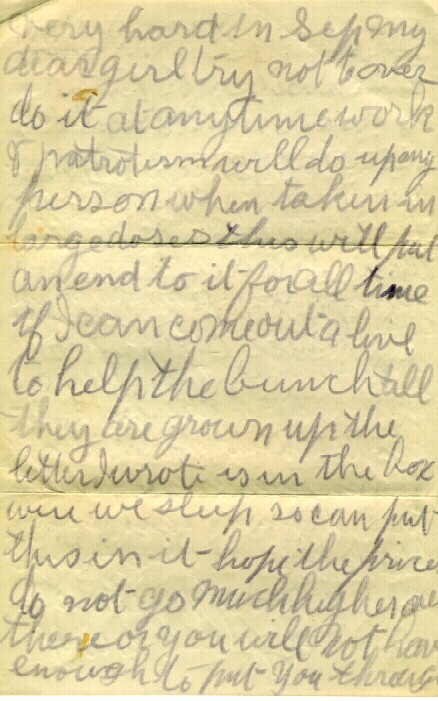 very hard in Sep my
dear girl try not to over
do it at any time work
& patrotism will do up any
person when taken in
large doses this will put
an end to it for all time
if I can come out a live
to help the bunch till
they are grown up the
letter I wrote is in the box
were we sleep so can put
this in it hope the prices
do not go much higher over
there or you will not have
enough to put you through